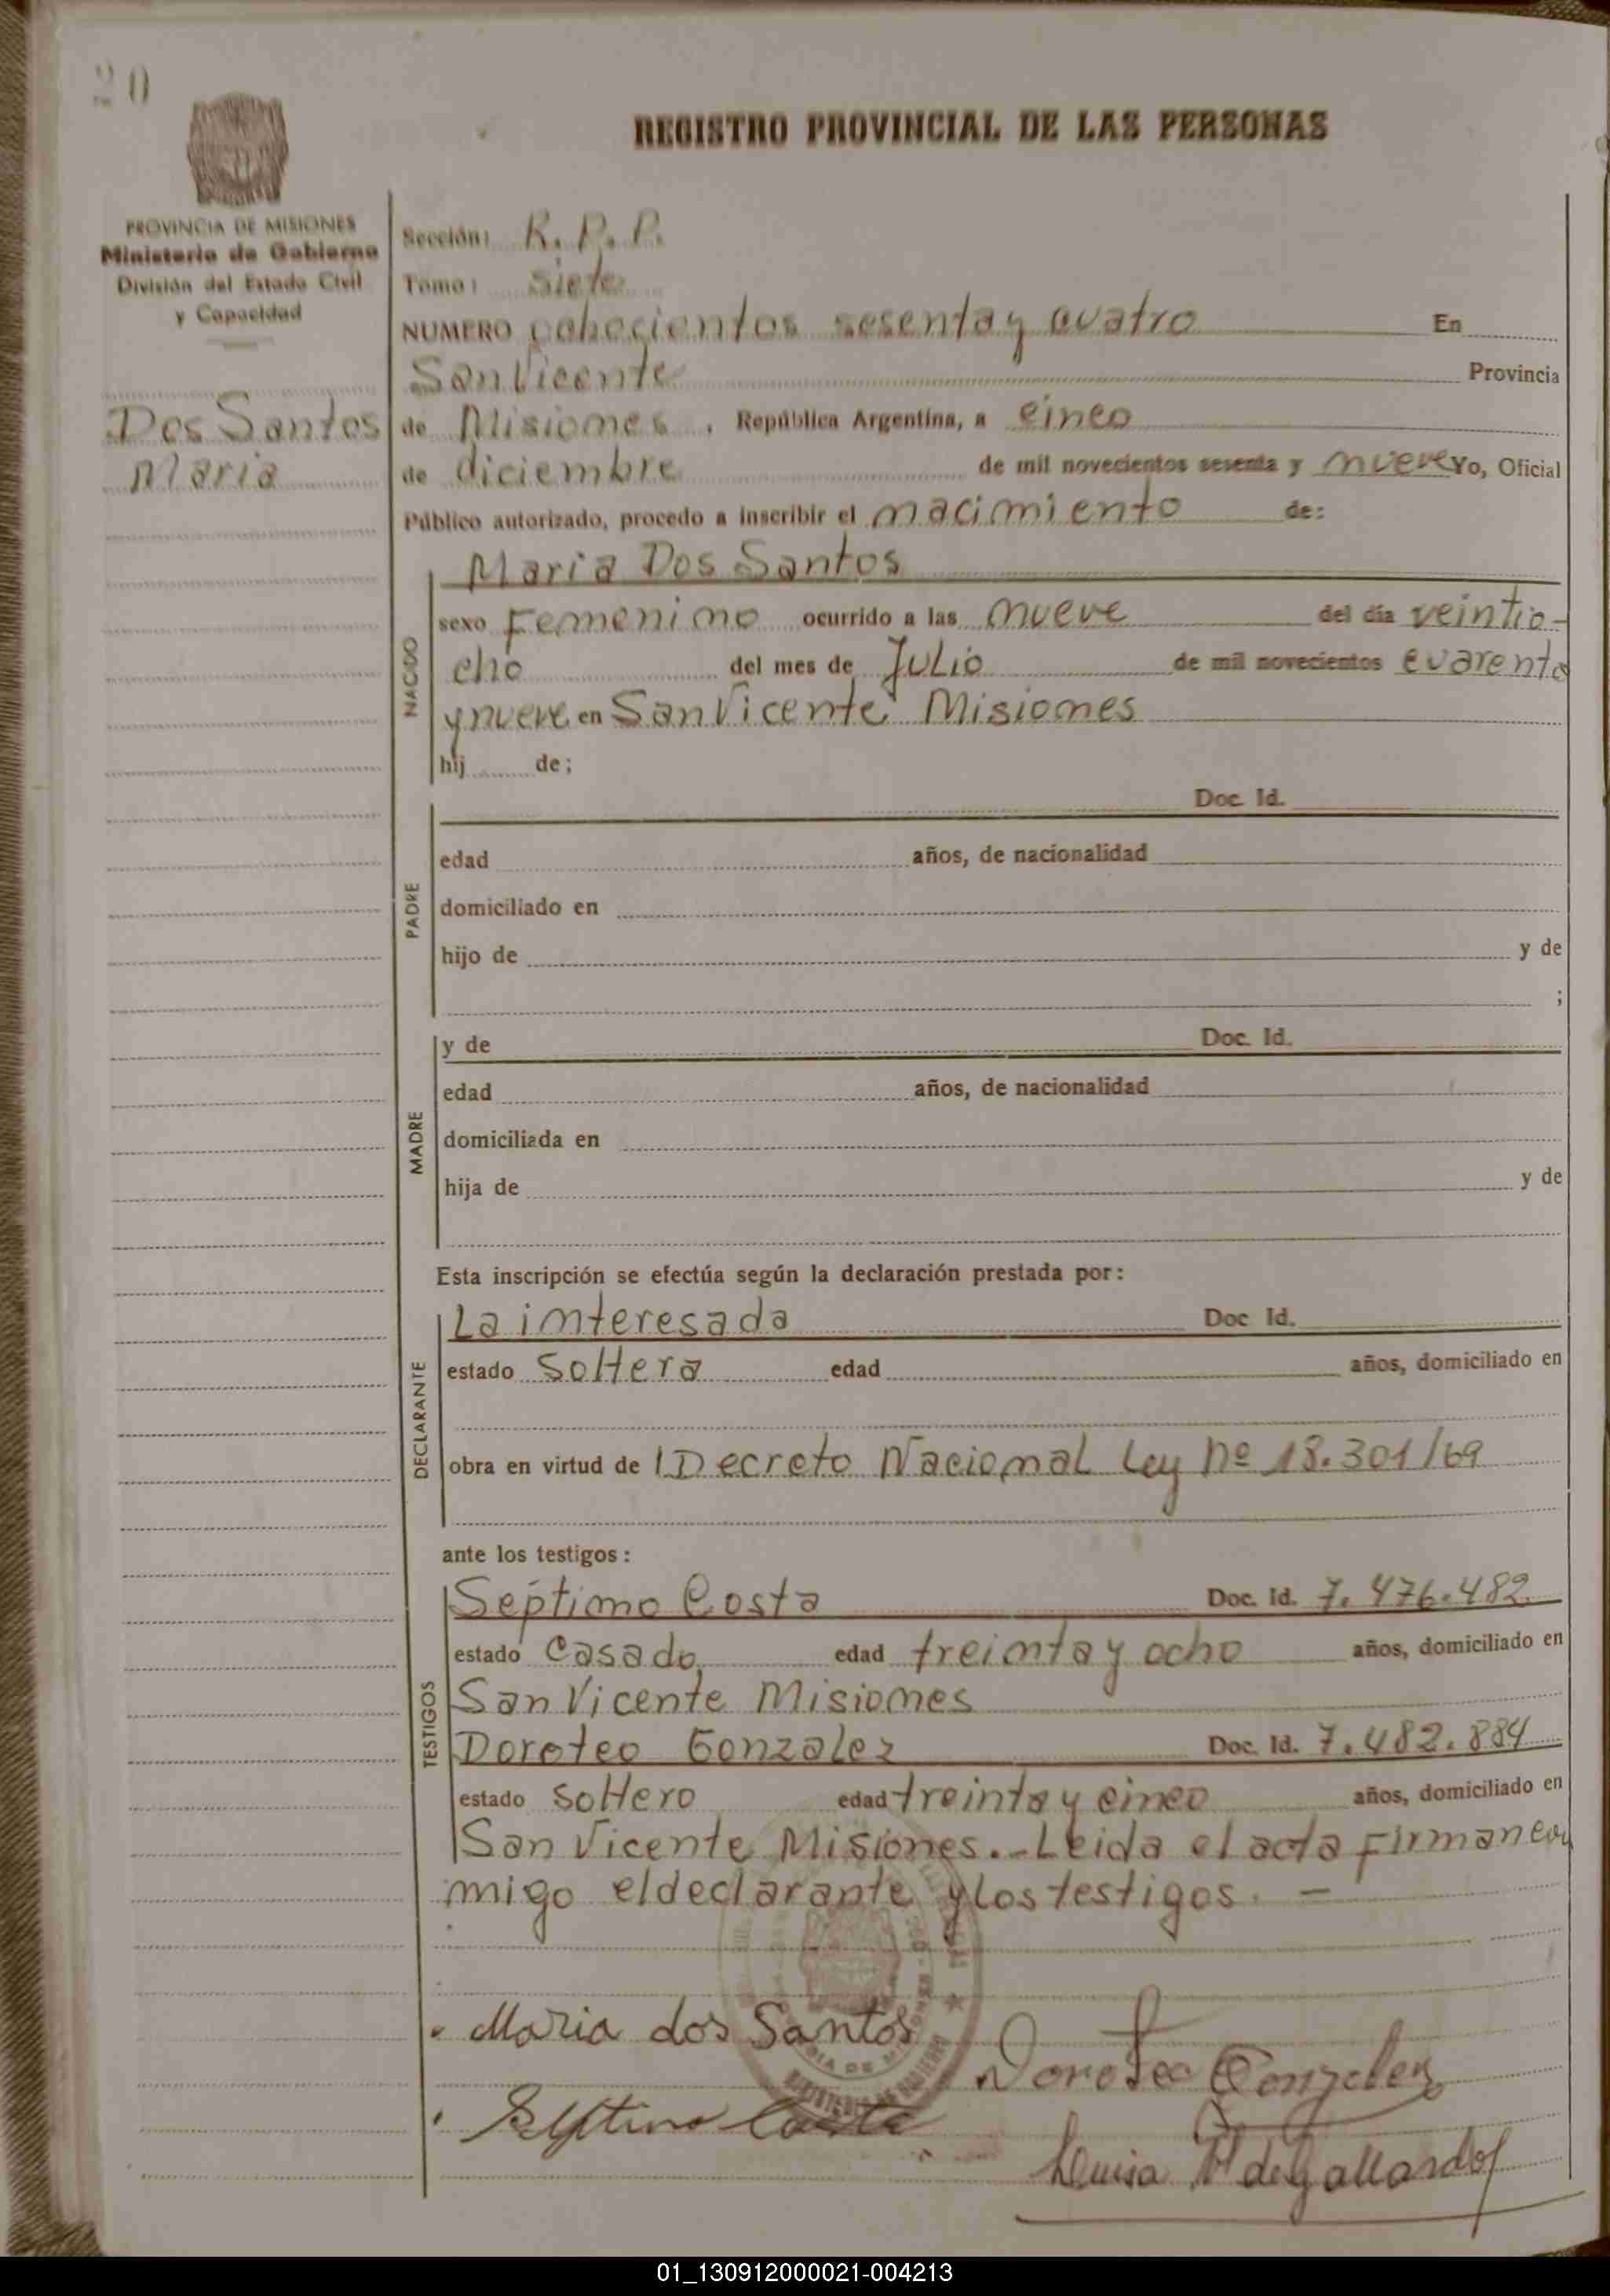 20
REGISTRO PROVINCIAL DE LAS PERSONAS
PROVINCIA DE MISIONES
Ministerio de Gobierno
División del Estado Civil
y Capacidad
Dos Santos
Maria
Sección: R. P. P.
Tomo: Siete
NUMERO ochocientos sesenta y cuatro En
San Vicente Provincia
de Misiones, República Argentina, a cinco
de diciembre de mil novecientos sesenta y nueve Yo, Oficial
Público autorizado, procedo a inscribir el nacimiento de:
NACIDO
Maria Dos Santos
sexo Femenino ocurrido a las nueve del día veintio-
cho del mes de Julio de mil novecientos cuarenta
y nueve en San Vicente Misiones
hij de;
PADRE
Doc. Id.
edad años, de nacionalidad
domiciliado en
hijo de y de
;
MADRE
y de Doc. Id.
edad años, de nacionalidad
domiciliada en
hija de y de
Esta inscripción se efectúa según la declaración prestada por:
DECLARANTE
La interesada Doc Id.
estado Soltera edad años, domiciliado en
obra en virtud de Decreto Nacional Ley nº 18.301/69
ante los testigos:
TESTIGOS
Septimo Costa Doc. Id. 7.476.482
estado Casado, edad treinta y ocho años, domiciliado en
San Vicente Misiones
Doroteo Gonzalez Doc. Id. 7.482.884
estado Soltero edad treinta y cinco años, domiciliado en
San Vicente Misiones.- Leida el acta Firman con
migo el declarante y los testigos. -
Maria dos Santos
Doroteo Gonzalez
Septimo Costa
Luisa de Gallardo
01_130912000021-004213